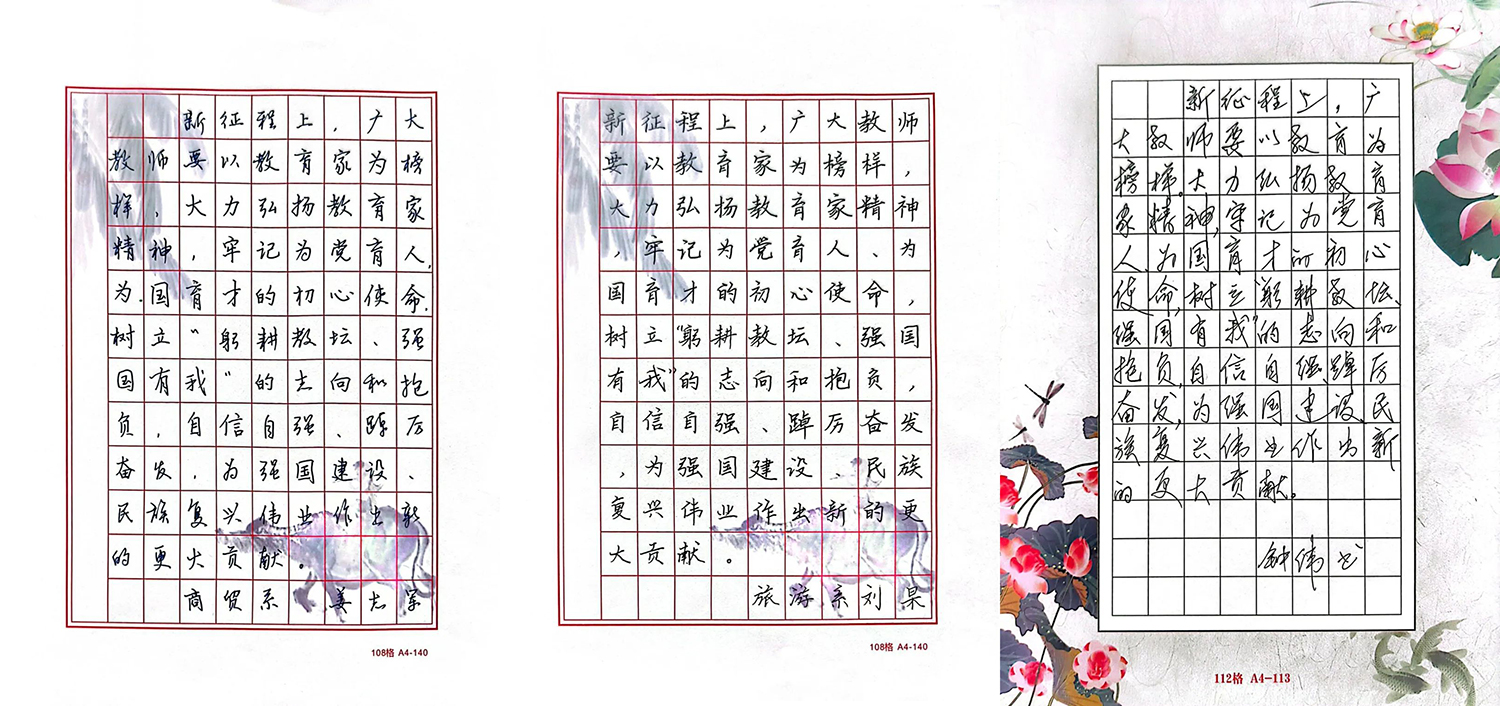 新征程上，广大
教师要以教育家为榜
样，大力弘扬教育家
精神，牢记为党育人、
为国育才的初心使命，
树立“躬耕教坛、强
国有我”的志向和抱
负，自信自强、踔厉
奋发，为强国建设、
民族复兴伟业作出新
的更大贡献。
商贸系 姜
108格 A4-140
新征程上，广大教师
要以教育家为榜样，
大力弘扬教育家精神
，牢记为党育人、为
国育才的初心使命，
树立“躬耕教坛、强国
有我”的志向和抱负，
自信自强、踔厉奋发
，为强国建设、民族
复兴伟业作出新的更
大贡献。
旅游系刘果
108格 A4-140
新征程上，广
大教师要以教育为
榜样。大力弘扬教育
家精神，牢记为党育
人、为国育才的初心
使命，树立“躬耕教坛、
强国有我”的志向和
抱负，自信自强、踔厉
奋发，为强国建设、民
族复兴伟业作出新
的更大贡献。
钟伟书
112格 A4-113